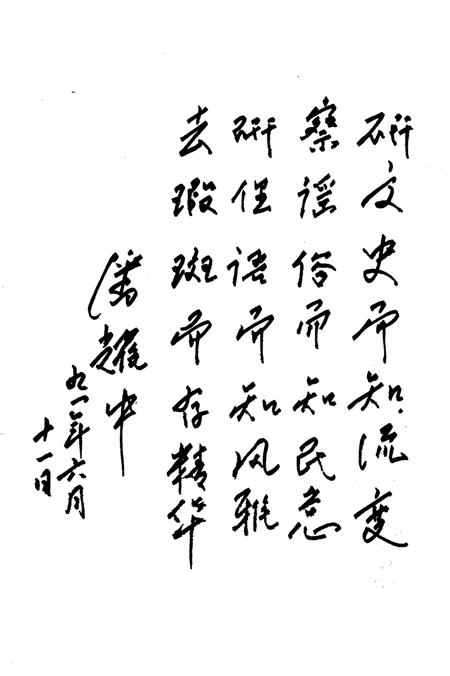 研文史而知流变
察谣俗而知民意
研俚语而知风雅
去瑕斑而存精华
潘耀中
九一年六月
十一日